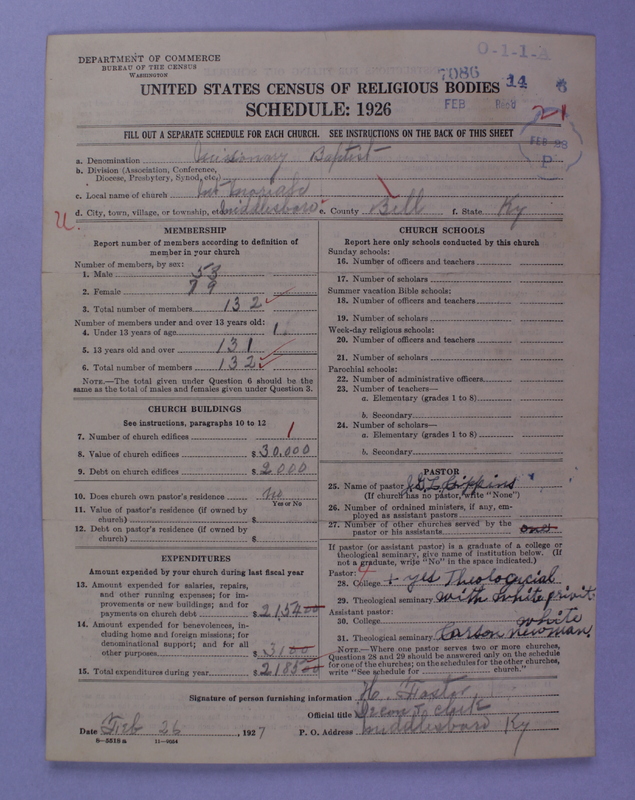 DEPARTMENT OF COMMERCE
BUREAU OF THE CENSUS
WASHINGTON
O-1-1-A
7086
14
6
FEB
21
FEB 28
P
UNITED STATES CENSUS OF RELIGIOUS BODIES
SCHEDULE: 1926
FILL OUT A SEPARATE SCHEDULE FOR EACH CHURCH. SEE INSTRUCTIONS ON THE BACK OF THIS SHEET
a. Denomination Missionary Baptist
b. Division (Association, Conference, Diocese, Presbytery, Synod, etc.)
c. Local name of church Mt
U. d. City, town, village, or township, etc. Middlesboro e. County Bell f. State Ky
MEMBERSHIP
Report number of members according to definition of
member in your church
Number of members, by sex:
1. Male 53
2. Female 79
3. Total number of members 132
Number of members under and over 13 years old:
4. Under 13 years of age 1
5. 13 years old and over 131
6. Total number of members 132
NOTE.—The total given under Question 6 should be the
same as the total of males and females given under Question 3.
CHURCH BUILDINGS
See instructions, paragraphs 10 to 12
7. Number of church edifices 1
8. Value of church edifices $30,000
9. Debt on church edifices $2000
10. Does church own pastor's residence no
Yes or No
11. Value of pastor's residence (if owned by
church) $
12. Debt on pastor's residence (if owned by
church) $
EXPENDITURES
Amount expended by your church during last fiscal year
13. Amount expended for salaries, repairs,
and other running expenses; for im-
provements or new buildings; and for
payments on church debt $2154 00
14. Amount expended for benevolences, in-
cluding home and foreign missions; for
denominational support; and for all
other purposes $31 00
15. Total expenditures during year $2185 00
CHURCH SCHOOLS
Report here only schools conducted by this church
Sunday schools:
16. Number of officers and teachers
17. Number of scholars
Summer vacation Bible schools:
18. Number of officers and teachers
19. Number of scholars
Week-day religious schools:
20. Number of officers and teachers
21. Number of scholars
Parochial schools:
22. Number of administrative officers
23. Number of teachers—
a. Elementary (grades 1 to 8)
b. Secondary
24. Number of scholars—
a. Elementary (grades 1 to 8)
b. Secondary
PASTOR
25. Name of pastor Cippins
(If church has no pastor, write "None")
26. Number of ordained ministers, if any, em-
ployed as assistant pastors
27. Number of other churches served by the
pastor or his assistants one
If pastor (or assistant pastor) is a graduate of a college or
theological seminary, give name of institution below. (If
not a graduate, write "No" in the space indicated.)
Pastor:
28. College yes Theological
29. Theological seminary with white privit
Assistant pastor:
30. College white
31. Theological seminary Carson Newman
NOTE.—Where one pastor serves two or more churches,
Questions 28 and 29 should be answered only on the schedule
for one of the churches; on the schedules for the other churches,
write "See schedule for church."
Signature of person furnishing information H. Foster
Official title Decon & clerk
Date Feb 26, 1927 P. O. Address Middlesboro Ky
8—5518 a 11—9034